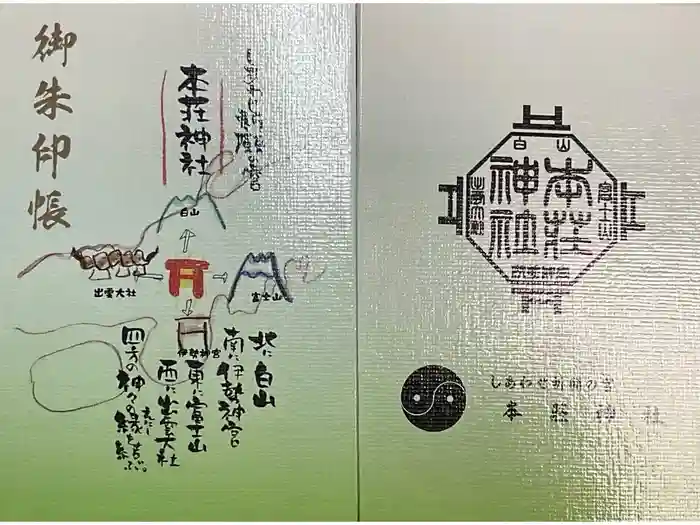 御朱印帳
本荘神社
白山
出雲大社
富士山
伊勢神宮
北に白山
南に伊勢神宮
東に富士山
西に出雲大社
四方の神々の縁を
えにし
白山
富士山
出雲大社
伊勢神宮
本荘
神社
しあわせ祈願の宮
本荘神社